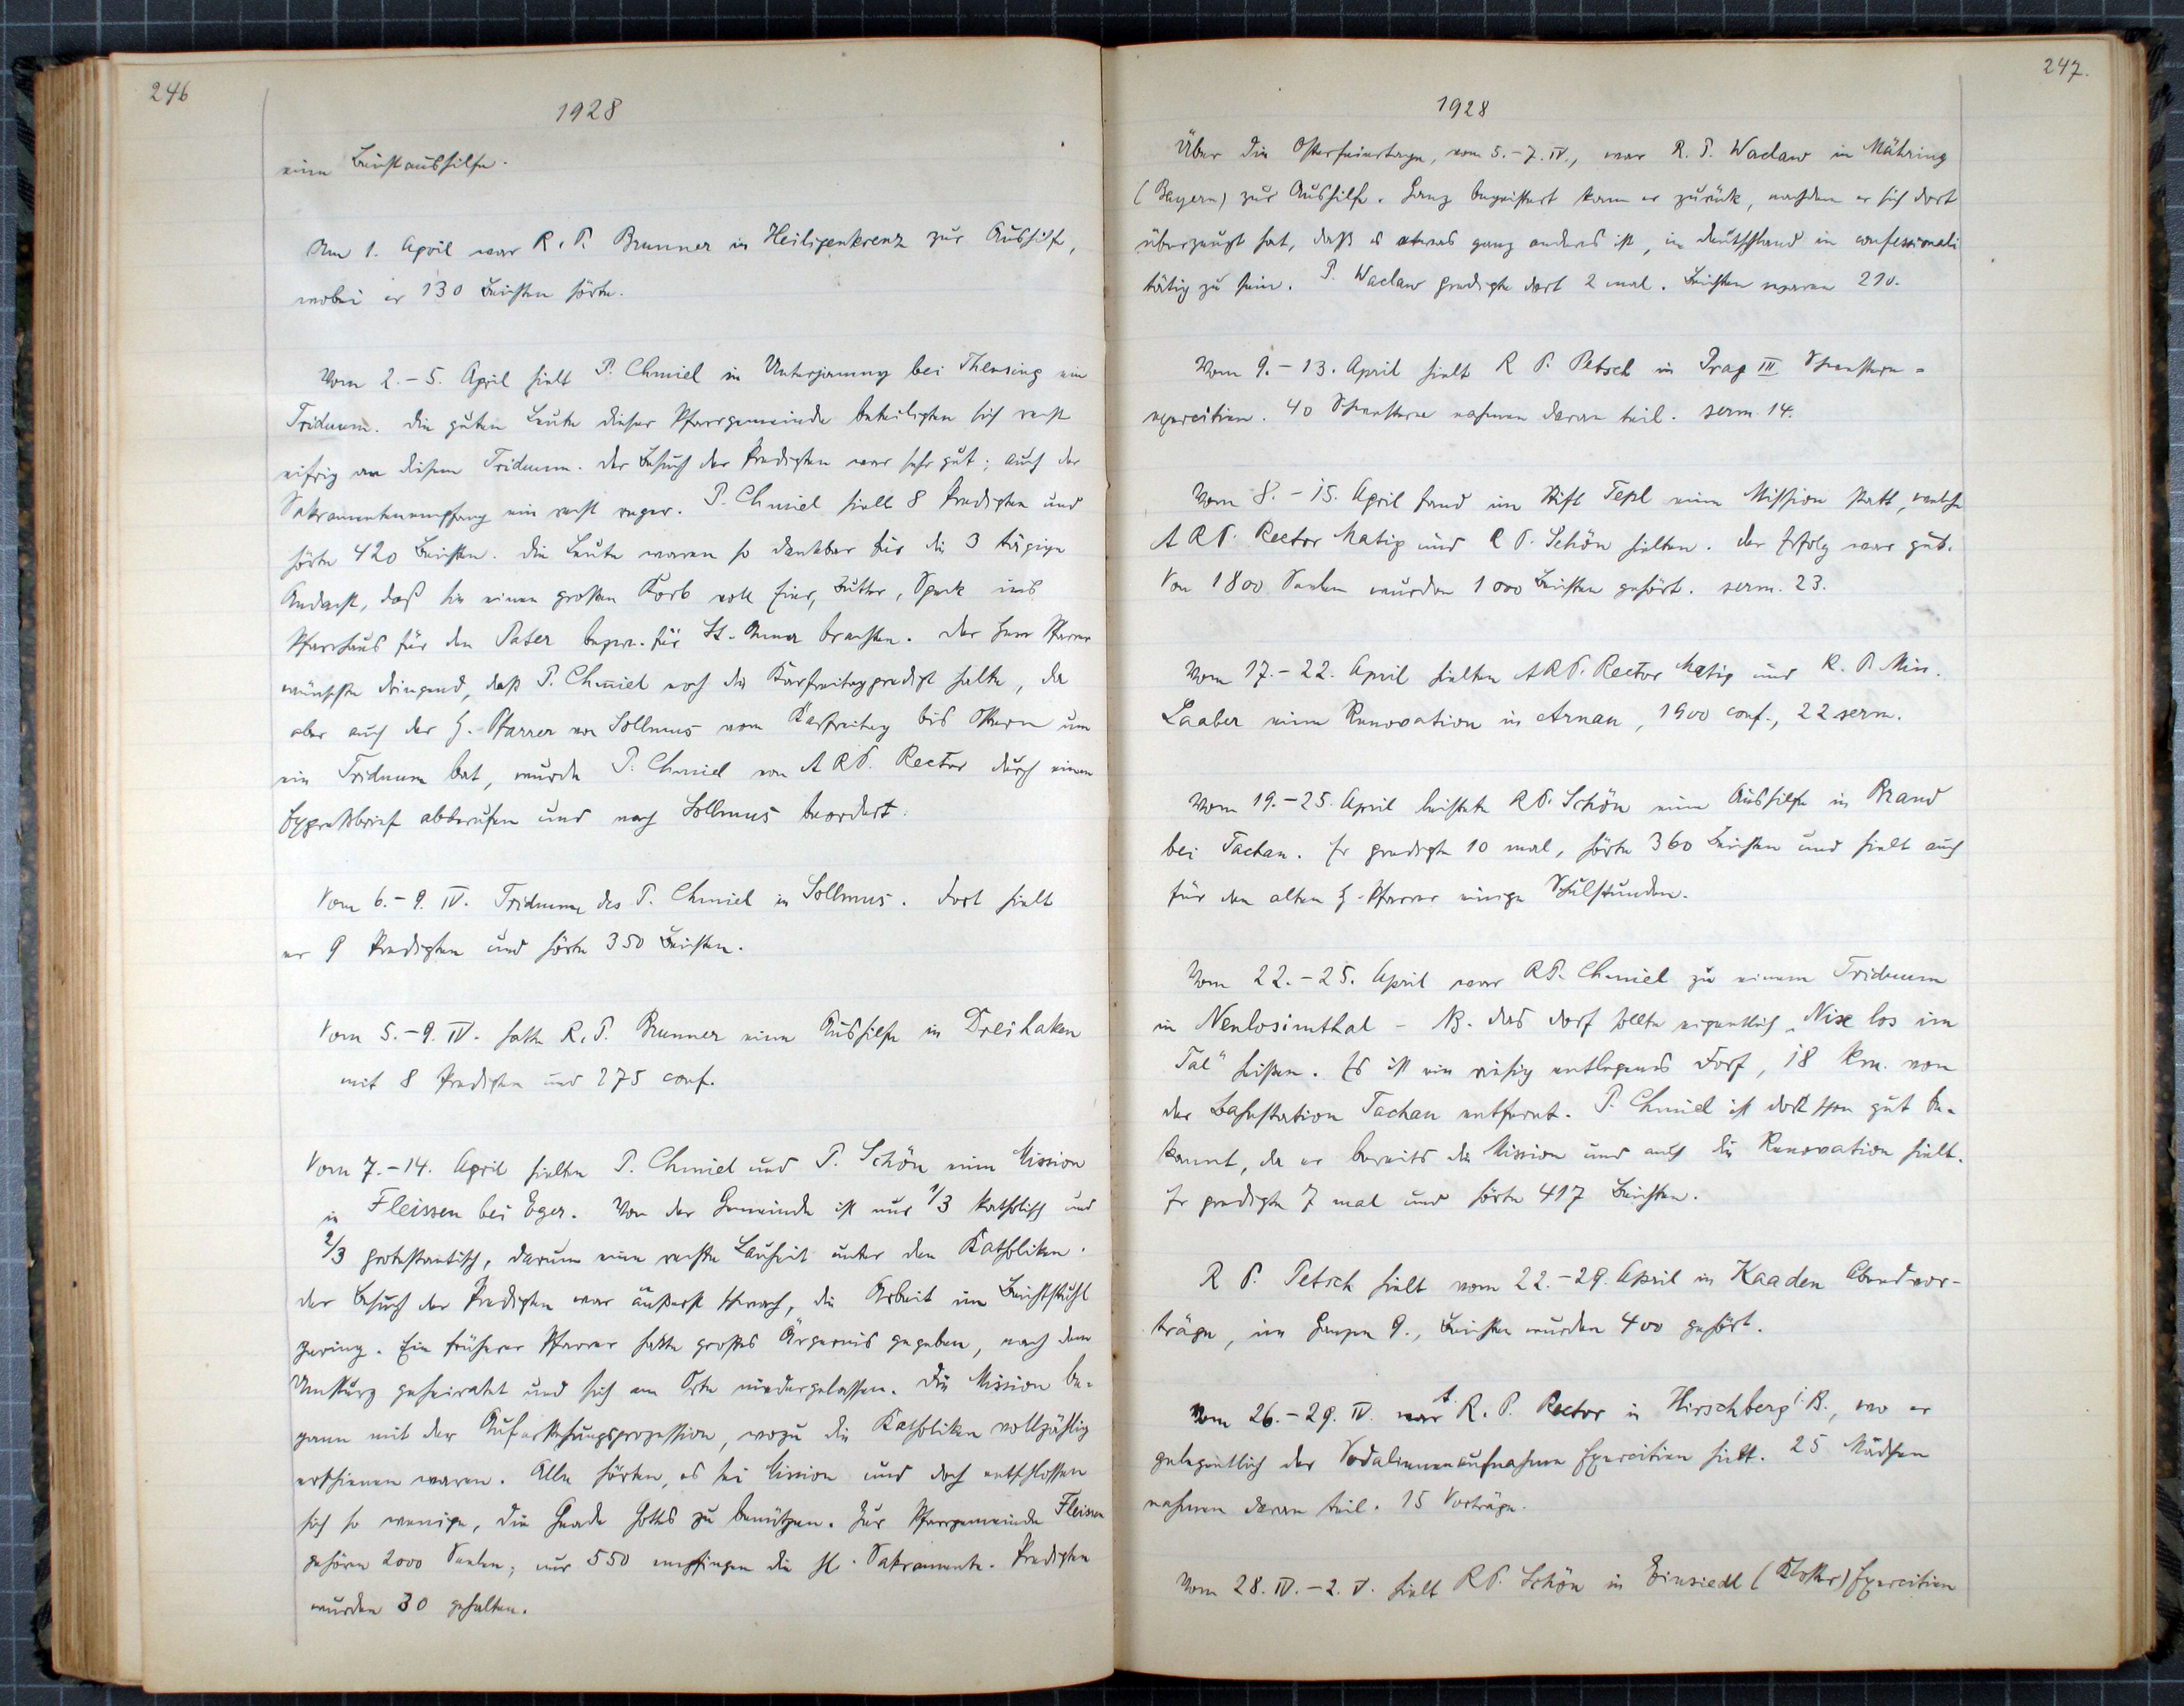 246
1928
eine Beichtaushilfe.
Am 1. April war R. P. Brunner in Heiligenkreuz zur Aushilfe,
wobei er 130 Beichten hörte.
Vom 2.-5. April hielt P. Chmiel in Unterjamny bei Theusing ein
Triduum. Die guten Leute dieser Pfarrgemeinde beteiligten sich recht
eifrig an diesem Triduum. Der Besuch der Predigten war sehr gut; auch der
Sakramentenempfang ein recht reger. P. Chmiel hielt 8 Predigten und
hörte 420 Beichten. Die Leute waren so dankbar für die 3 tägige
Andacht, daß sie einen großen Korb voll Eier, Butter, Speck ins
Pfarrhaus für den Pater bezw. für St. Anna brachten. Der Herr Pfarrer
wünschte dringend, daß P. Chmiel noch die Karfreitagpredigt halte, da
aber auch der H. Pfarrer von Sollmus vom Karfreitag bis Ostern um
ein Triduum bat, wurde P. Chmiel von A R P. Rector durch einen
Expreßbrief abberufen und nach Sollmus beordert.
Vom 6.-9. IV. Triduum des P. Chmiel in Sollmus. Dort hielt
er 9 Predigten und hörte 350 Beichten.
Vom 5.-9. IV. hatte R. P. Brunner eine Aushilfe in Dreihaken
mit 8 Predigten und 275 conf.
Vom 7.-14. April hielten P. Chmiel und P. Schön eine Mission
in Fleissen bei Eger. Von der Gemeinde ist nur 1/3 katholisch und
2/3 protestantisch, darum eine rechte Lauheit unter den Katholiken.
Der Besuch der Predigten war äußerst schwach, die Arbeit im Beichtstuhl
gering. Ein früherer Pfarrer hatte großes Ärgernis gegeben, nach dem
Umsturz geheiratet und sich am Orte niedergelassen. Die Mission be-
gann mit der Auferstehungsprozession, wozu die Katholiken vollzählig
erschienen waren. Alle hörten, es sei Mission und doch entschlossen
sich so wenige, die Gnade Gottes zu benützen. Zur Pfarrgemeinde Fleissen
gehören 2000 Seelen; nur 550 empfingen die hl. Sakramente. Predigten
wurden 30 gehalten.
247.
1928
Über die Osterfeiertage, vom 5.-7. IV., war R. P. Waclaw in Mähring
(Bayern) zur Aushilfe. Ganz begeistert kam er zurück, nachdem er sich dort
überzeugt hat, daß es etwas ganz anderes ist, in Deutschland in confessionali
tätig zu sein. P. Waclaw predigte dort 2 mal. Beichten waren 210.
Vom 9.-13. April hielt R P. Petsch in Prag III Schwestern-
exercitien. 40 Schwestern nahmen daran teil. serm. 14.
Vom 8.-15. April fand im Stift Tepl eine Mission statt, welche
A R P. Rector Matig und R P. Schön hielten. Der Erfolg war gut.
Von 1800 Seelen wurden 1000 Beichten gehört. serm. 23.
Vom 17.-22. April hielten A R P. Rector Matig und R. P. Min.
Laaber eine Renovation in Arnau, 1900 conf., 22 serm.
Vom 19.-25. April leistete R P. Schön eine Aushilfe in Brand
bei Tachau. Er predigte 10 mal, hörte 360 Beichten und hielt auch
für den alten H. Pfarrer einige Schulstunden.
Vom 22.-25. April war R P. Chmiel zu einem Triduum
in Neulosimthal - NB. das Dorf sollte eigentlich „Nix los im
Tal" heißen. Es ist ein riesig entlegenes Dorf, 18 km. von
der Bahnstation Tachau entfernt. P. Chmiel ist dort schon gut be-
kannt, da er bereits die Mission und auch die Renovation hielt.
Er predigte 7 mal und hörte 417 Beichten.
R P. Petsch hielt vom 22.-29. April in Kaaden Abendvor-
träge, im Ganzen 9., Beichten wurden 400 gehört.
Vom 26.-29. IV. war A. R. P. Rector in Hirschberg i. B., wo er
gelegentlich der Sodalinnenaufnahme Exercitien hielt. 25 Mädchen
nahmen daran teil. 15 Vorträge.
Vom 28. IV.-2. V. hielt R P. Schön in Einsiedl (Kloster) Exercitien